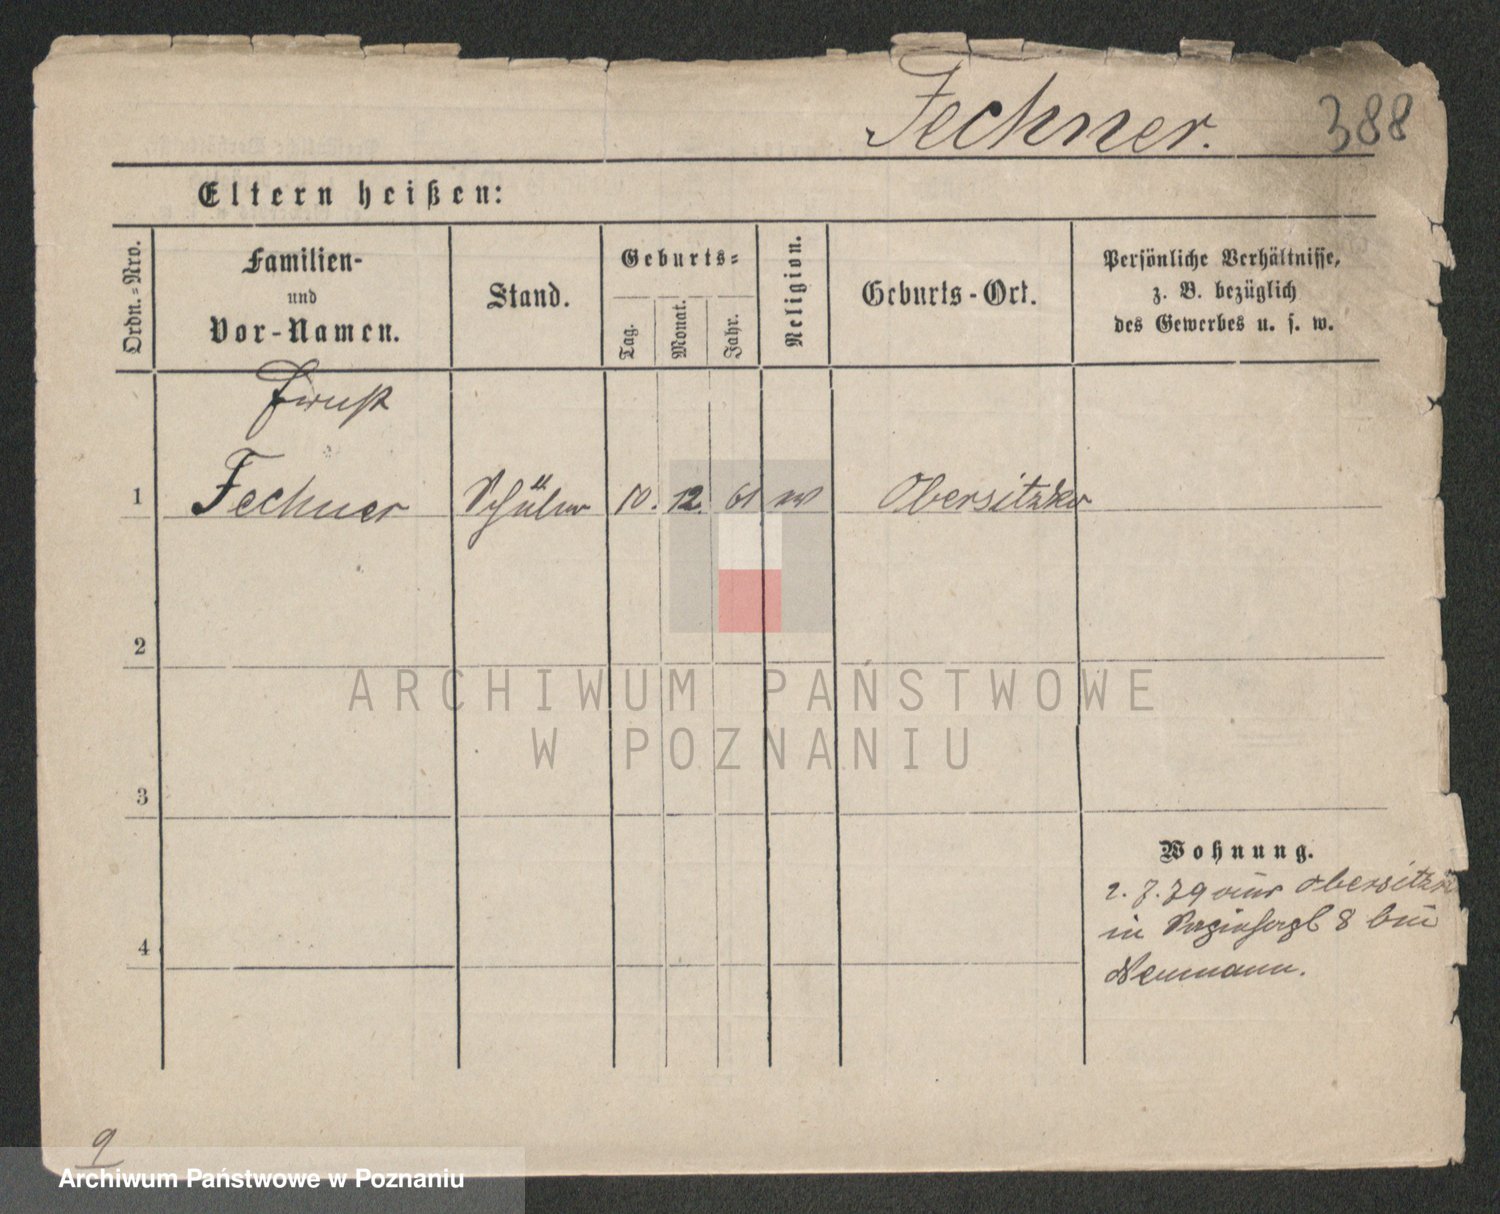 Fechner.
388
Eltern heißen:
Ordn.-Nro.
Familien-
und
Vor-Namen.
Stand.
Geburts-
Tag.
Monat.
Jahr.
Religion.
Geburts-Ort.
Persönliche Verhältnisse,
z. B. bezüglich
des Gewerbes u. s. w.
Ernst
1 Fechner Schüler 10. 12. 61 Obersitzko
2
ARCHIWUM PAŃSTWOWE
W POZNANIU
3
Wohnung.
2. 7. 79 aus Obersitzko
in 8 bei
4
Neumann.
9
Archiwum Państwowe w Poznaniu